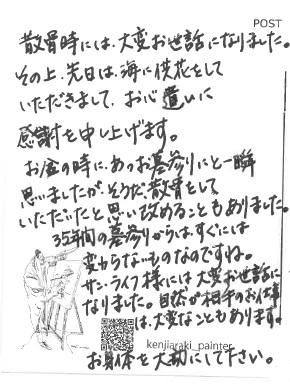 POST
散骨時には、大変お世話になりました。
その上、先日は、海に供花をして
いただきまして、お心遣いに
感謝を申し上げます。
お盆の時に、あのお墓参りにと一瞬
思いましたが、そうだ散骨をして
いただいたと思い改めることもありました。
35年間の墓参りからは、すぐには
変わらないものなのですね。
サン・ライフ様には大変お世話に
なりました。自然が相手のお仕事
は、大変なこともあります。
kenjiaraki_painter
お身体を大切にして下さい。